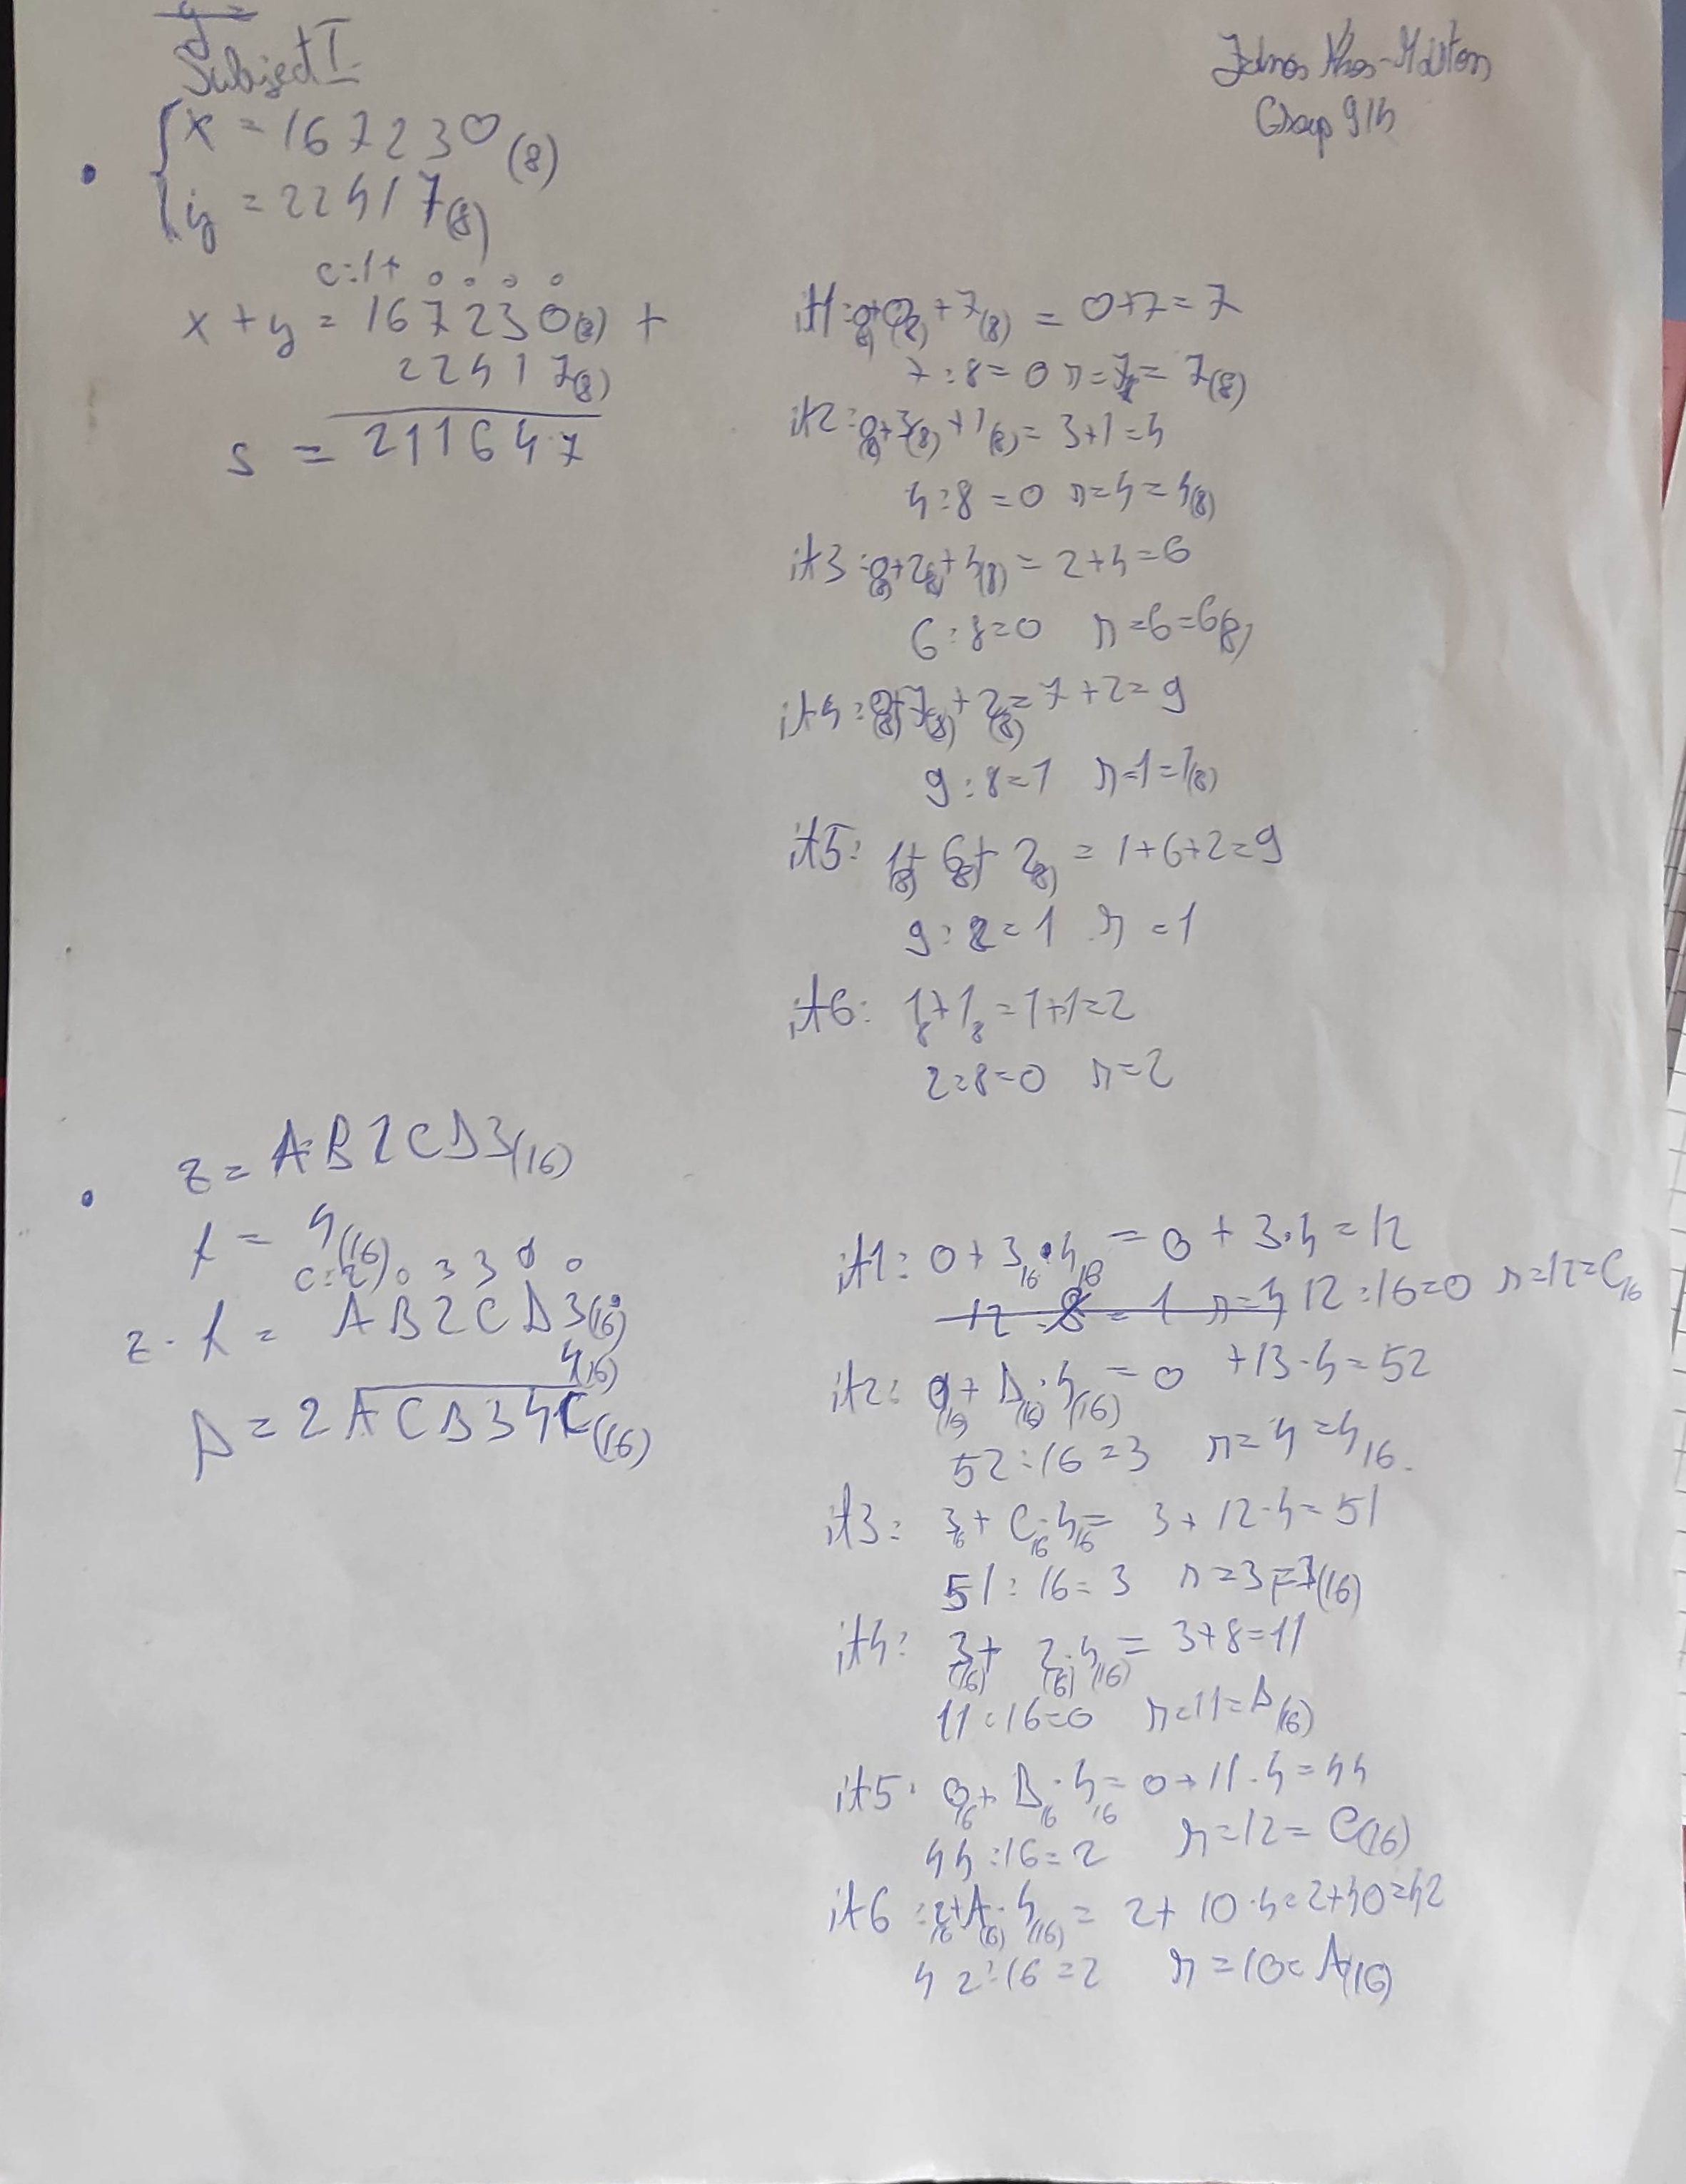 Subject I
Group 914
x = 167230(8)
y = 22417(8)
c:1+ 0 0 0 0
x + y = 167230(8) +
22417(8)
s = 211647
it1: 0(8)+0(8) + 7(8) = 0+7=7
7:8=0 r=7= 7(8)
it2: 0(8)+3(8)+1(8)= 3+1=4
4:8=0 r=4=4(8)
it3: 0(8)+2(8)+4(8)= 2+4=6
6:8=0 r=6=6(8)
it4: 0(8)+7(8)+2(8)= 7+2=9
9:8=1 r=1=1(8)
it5: 1(8)+ 6(8)+ 2(8) = 1+6+2=9
9:8=1 r=1
it6: 1₈+1₈=1+1=2
2:8=0 r=2
z = AB2CD3(16)
t = 4(16)
c:2 0 3 3 0 0
z · t = AB2CD3(16)·
4(16)
p = 2ACB34C(16)
it1: 0+3₁₆·4₁₆ = 0+3·4=12
12:8=1 r=4 12:16=0 r=12=C₁₆
it2: 0(16)+D(16)·4(16)=0 +13·4=52
52:16=3 r=4=4₁₆.
it3: 3₁₆+C₁₆·4₁₆= 3+12·4=51
51:16=3 r=3=3(16)
it4: 3(16)+ 2(16)·4(16)= 3+8=11
11:16=0 r=11=B(16)
it5: 0₁₆+B₁₆·4₁₆=0+11·4=44
44:16=2 r=12= C(16)
it6: 2₁₆+A(16)·4(16)= 2+10·4=2+40=42
42:16=2 r=10=A(16)